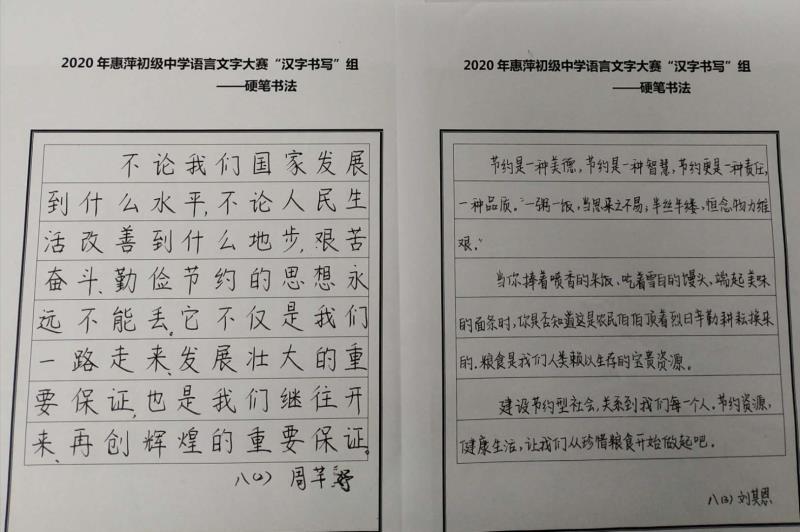 2020 年惠萍初级中学语言文字大赛“汉字书写”组
——硬笔书法
不论我们国家发展
到什么水平,不论人民生
活改善到什么地步,艰苦
奋斗、勤俭节约的思想永
远不能丢。它不仅是我们
一路走来、发展壮大的重
要保证,也是我们继往开
来、再创辉煌的重要保证。
八(2) 周芊妤
2020 年惠萍初级中学语言文字大赛“汉字书写”组
——硬笔书法
节约是一种美德,节约是一种智慧,节约更是一种责任,
一种品质。“一粥一饭,当思来之不易;半丝半缕,恒念物力维
艰。”
当你捧着喷香的米饭、吃着雪白的馒头、端起美味
的面条时,你是否知道这是农民伯伯顶着烈日辛勤耕耘换来
的。粮食是我们人类赖以生存的宝贵资源。
建设节约型社会,关系到我们每一个人。节约资源,
健康生活,让我们从珍惜粮食开始做起吧。
八(3) 刘其恩